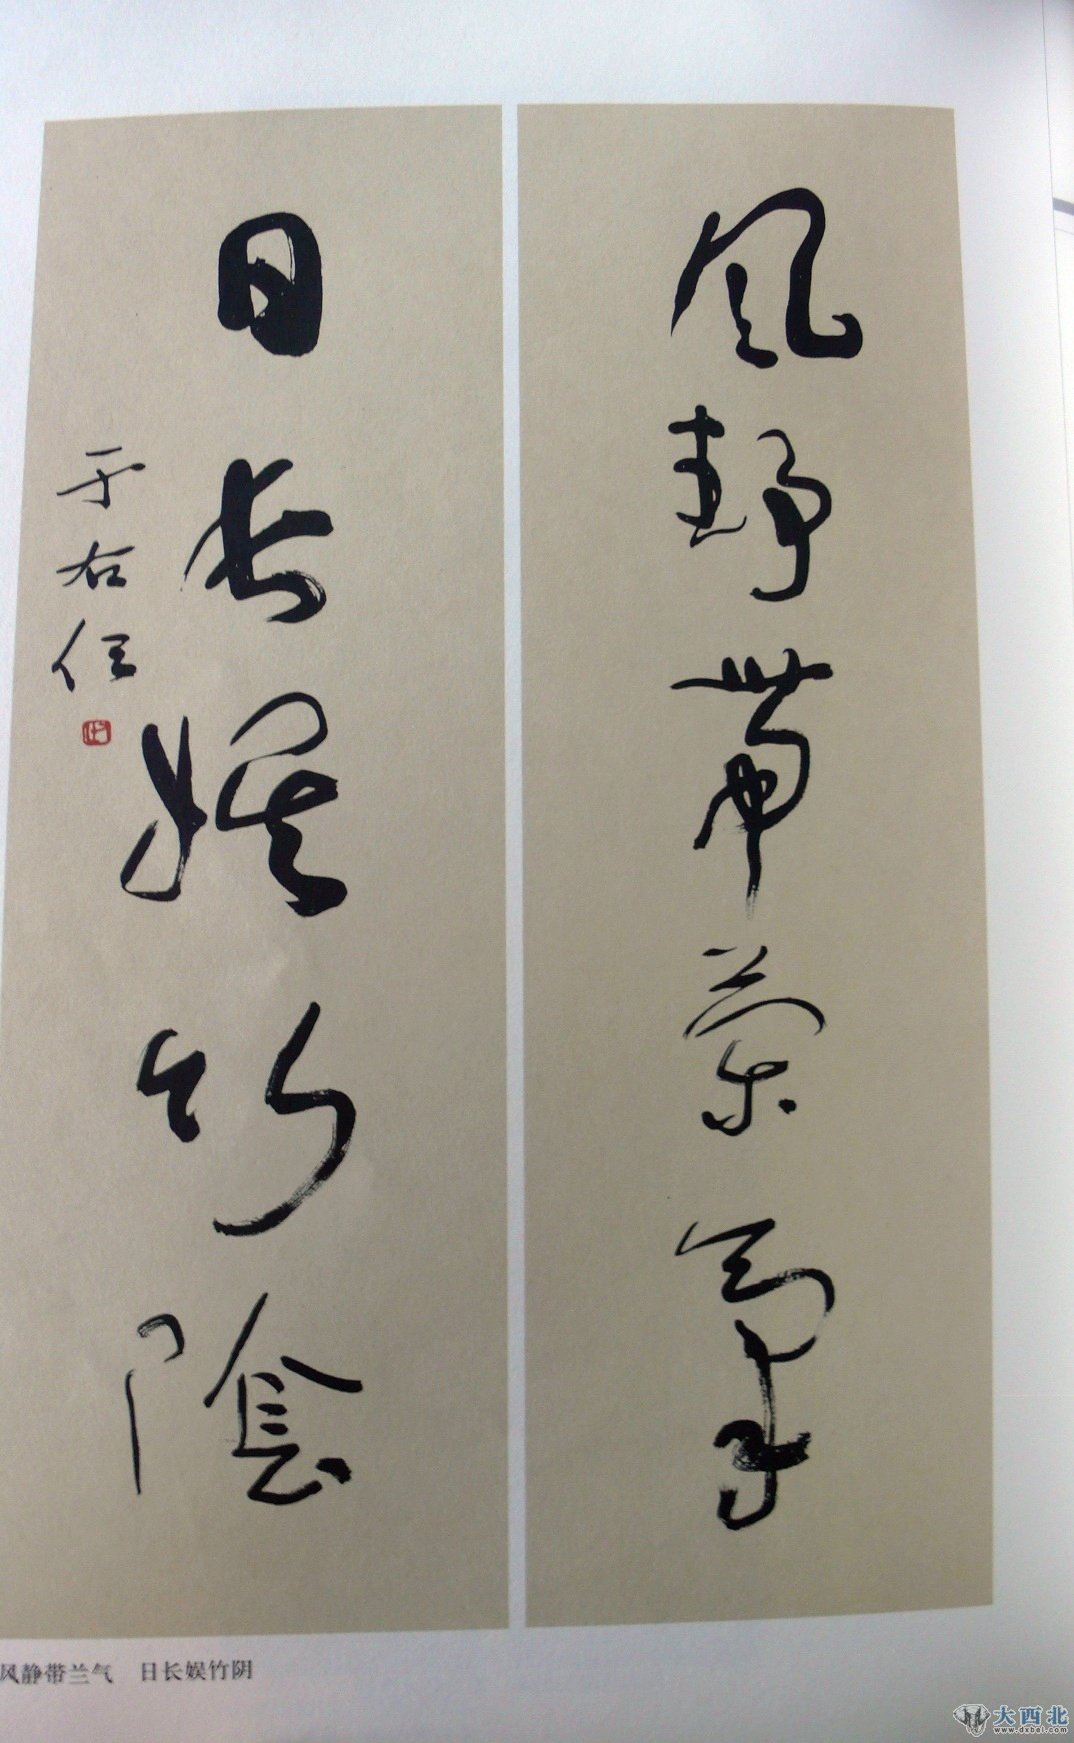 風靜帶蘭氣
日長娛竹陰
于右任
风静带兰气 日长娱竹阴
大西北
www.dxbei.com